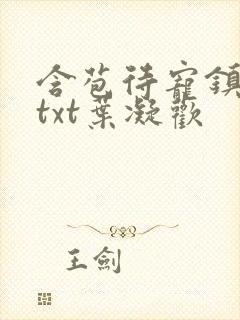 含苞待寵鎮
txt葉凝歡
王劍